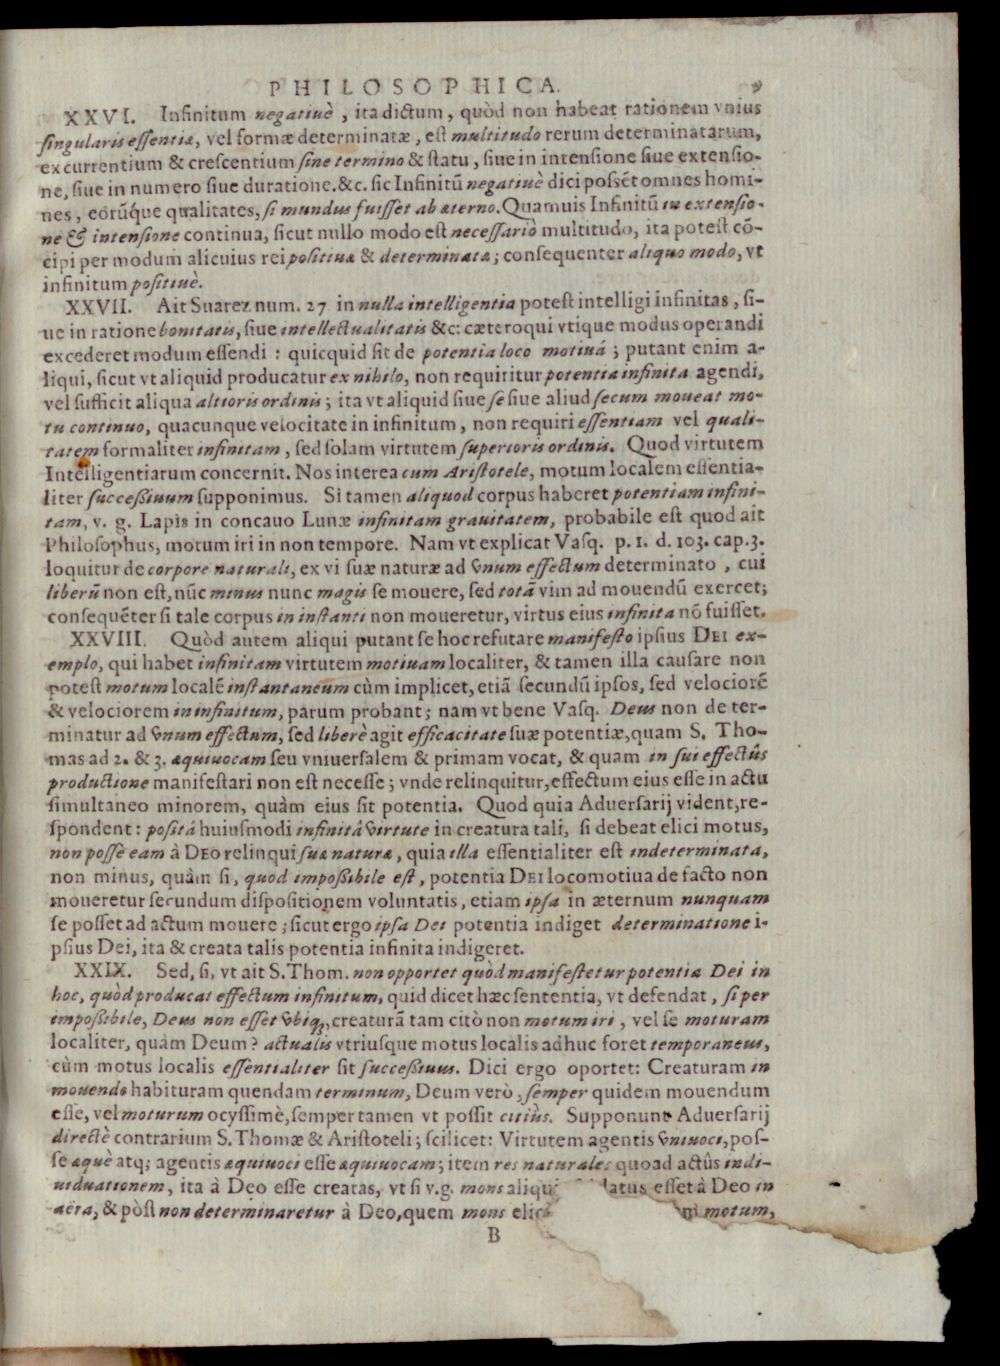 PHILOSOPHICA. 9
XXVI. Infinitum negatiuè, ita dictum, quòd non habeat rationem vnius
singularis essentiæ, vel formæ determinatæ, est multitudo rerum determinatarum,
excurrentium & crescentium sine termino & statu, siue in intensione siue extensio-
ne, siue in numero siue duratione. &c. sic Infinitũ negatiuè dici possẽt omnes homi-
nes, eorũque qualitates, si mundus fuisset ab æterno. Quamuis Infinitũ in extensio-
ne & intensione continua, sicut nullo modo est necessariò multitudo, ita potest cõ-
cipi per modum alicuius rei positiuæ & determinatæ; consequenter aliquo modo, vt
infinitum positiuè.
XXVII. Ait Suarez num. 27 in nulla intelligentia potest intelligi infinitas, si-
ue in ratione bonitatis, siue intellectualitatis &c: cæteroqui vtique modus operandi
excederet modum essendi: quicquid sit de potentia loco motiuâ; putant enim a-
liqui, sicut vt aliquid producatur ex nihilo, non requiritur potentia infinita agendi,
vel sufficit aliqua altioris ordinis; ita vt aliquid siue se siue aliud secum moueat mo-
tu continuo, quacunque velocitate in infinitum, non requiri essentiam vel quali-
tatem formaliter infinitam, sed solam virtutem superioris ordinis. Quod virtutem
Intelligentiarum concernit. Nos interea cum Aristotele, motum localem essentia-
liter successiuum supponimus. Si tamen aliquod corpus haberet potentiam infini-
tam, v. g. Lapis in concauo Lunæ infinitam grauitatem, probabile est quod ait
Philosophus, motum iri in non tempore. Nam vt explicat Vasq. p. 1. d. 103. cap. 3.
loquitur de corpore naturali, ex vi suæ naturæ ad vnum effectum determinato, cui
liberũ non est, nũc minus nunc magis se mouere, sed totã vim ad mouendũ exercet;
consequẽter si tale corpus in instanti non moueretur, virtus eius infinita nõ fuisset.
XXVIII. Quòd autem aliqui putant se hoc refutare manifesto ipsius DEI ex-
emplo, qui habet infinitam virtutem motiuam localiter, & tamen illa causare non
potest motum localẽ instantaneum cùm implicet, etiã secundũ ipsos, sed velociorẽ
& velociorem in infinitum, parum probant; nam vt bene Vasq. Deus non deter-
minatur ad vnum effectum, sed liberè agit efficacitate suæ potentiæ, quam S. Tho-
mas ad 2. & 3. æquiuocam seu vniuersalem & primam vocat, & quam in sui effectûs
productione manifestari non est necesse; vnde relinquitur, effectum eius esse in actu
simultaneo minorem, quàm eius sit potentia. Quod quia Aduersarij vident, re-
spondent: positâ huiusmodi infinitâ virtute in creatura tali, si debeat elici motus,
non posse eam à DEO relinqui suæ naturæ, quia illa essentialiter est indeterminata,
non minus, quàm si, quod impossibile est, potentia DEI locomotiua de facto non
moueretur secundum dispositionem voluntatis, etiam ipsa in æternum nunquam
se posset ad actum mouere; sicut ergo ipsa Dei potentia indiget determinatione i-
psius Dei, ita & creata talis potentia infinita indigeret.
XXIX. Sed, si, vt ait S. Thom. non opportet quòd manifestetur potentia Dei in
hoc, quòd producat effectum infinitum, quid dicet hæc sententia, vt defendat, si per
impossibile, Deus non esset vbiq;, creaturã tam citò non motum iri, vel se moturam
localiter, quàm Deum? actualis vtriusque motus localis adhuc foret temporaneus,
cùm motus localis essentialiter sit successiuus. Dici ergo oportet: Creaturam in
mouendo habituram quendam terminum, Deum verò, semper quidem mouendum
esse, vel moturum ocyssimè, semper tamen vt possit citiùs. Supponunt Aduersarij
directè contrarium S. Thomæ & Aristoteli; scilicet: Virtutem agentis vniuoci, pos-
se æquè atq; agentis æquiuoci esse æquiuocam; item res naturales quoad actûs indi-
uiduationem, ita à Deo esse creatas, vt si v.g. mons aliqui latus esset à Deo in
aëra, & pòst non determinaretur à Deo, quem mons elic ni motum,
B